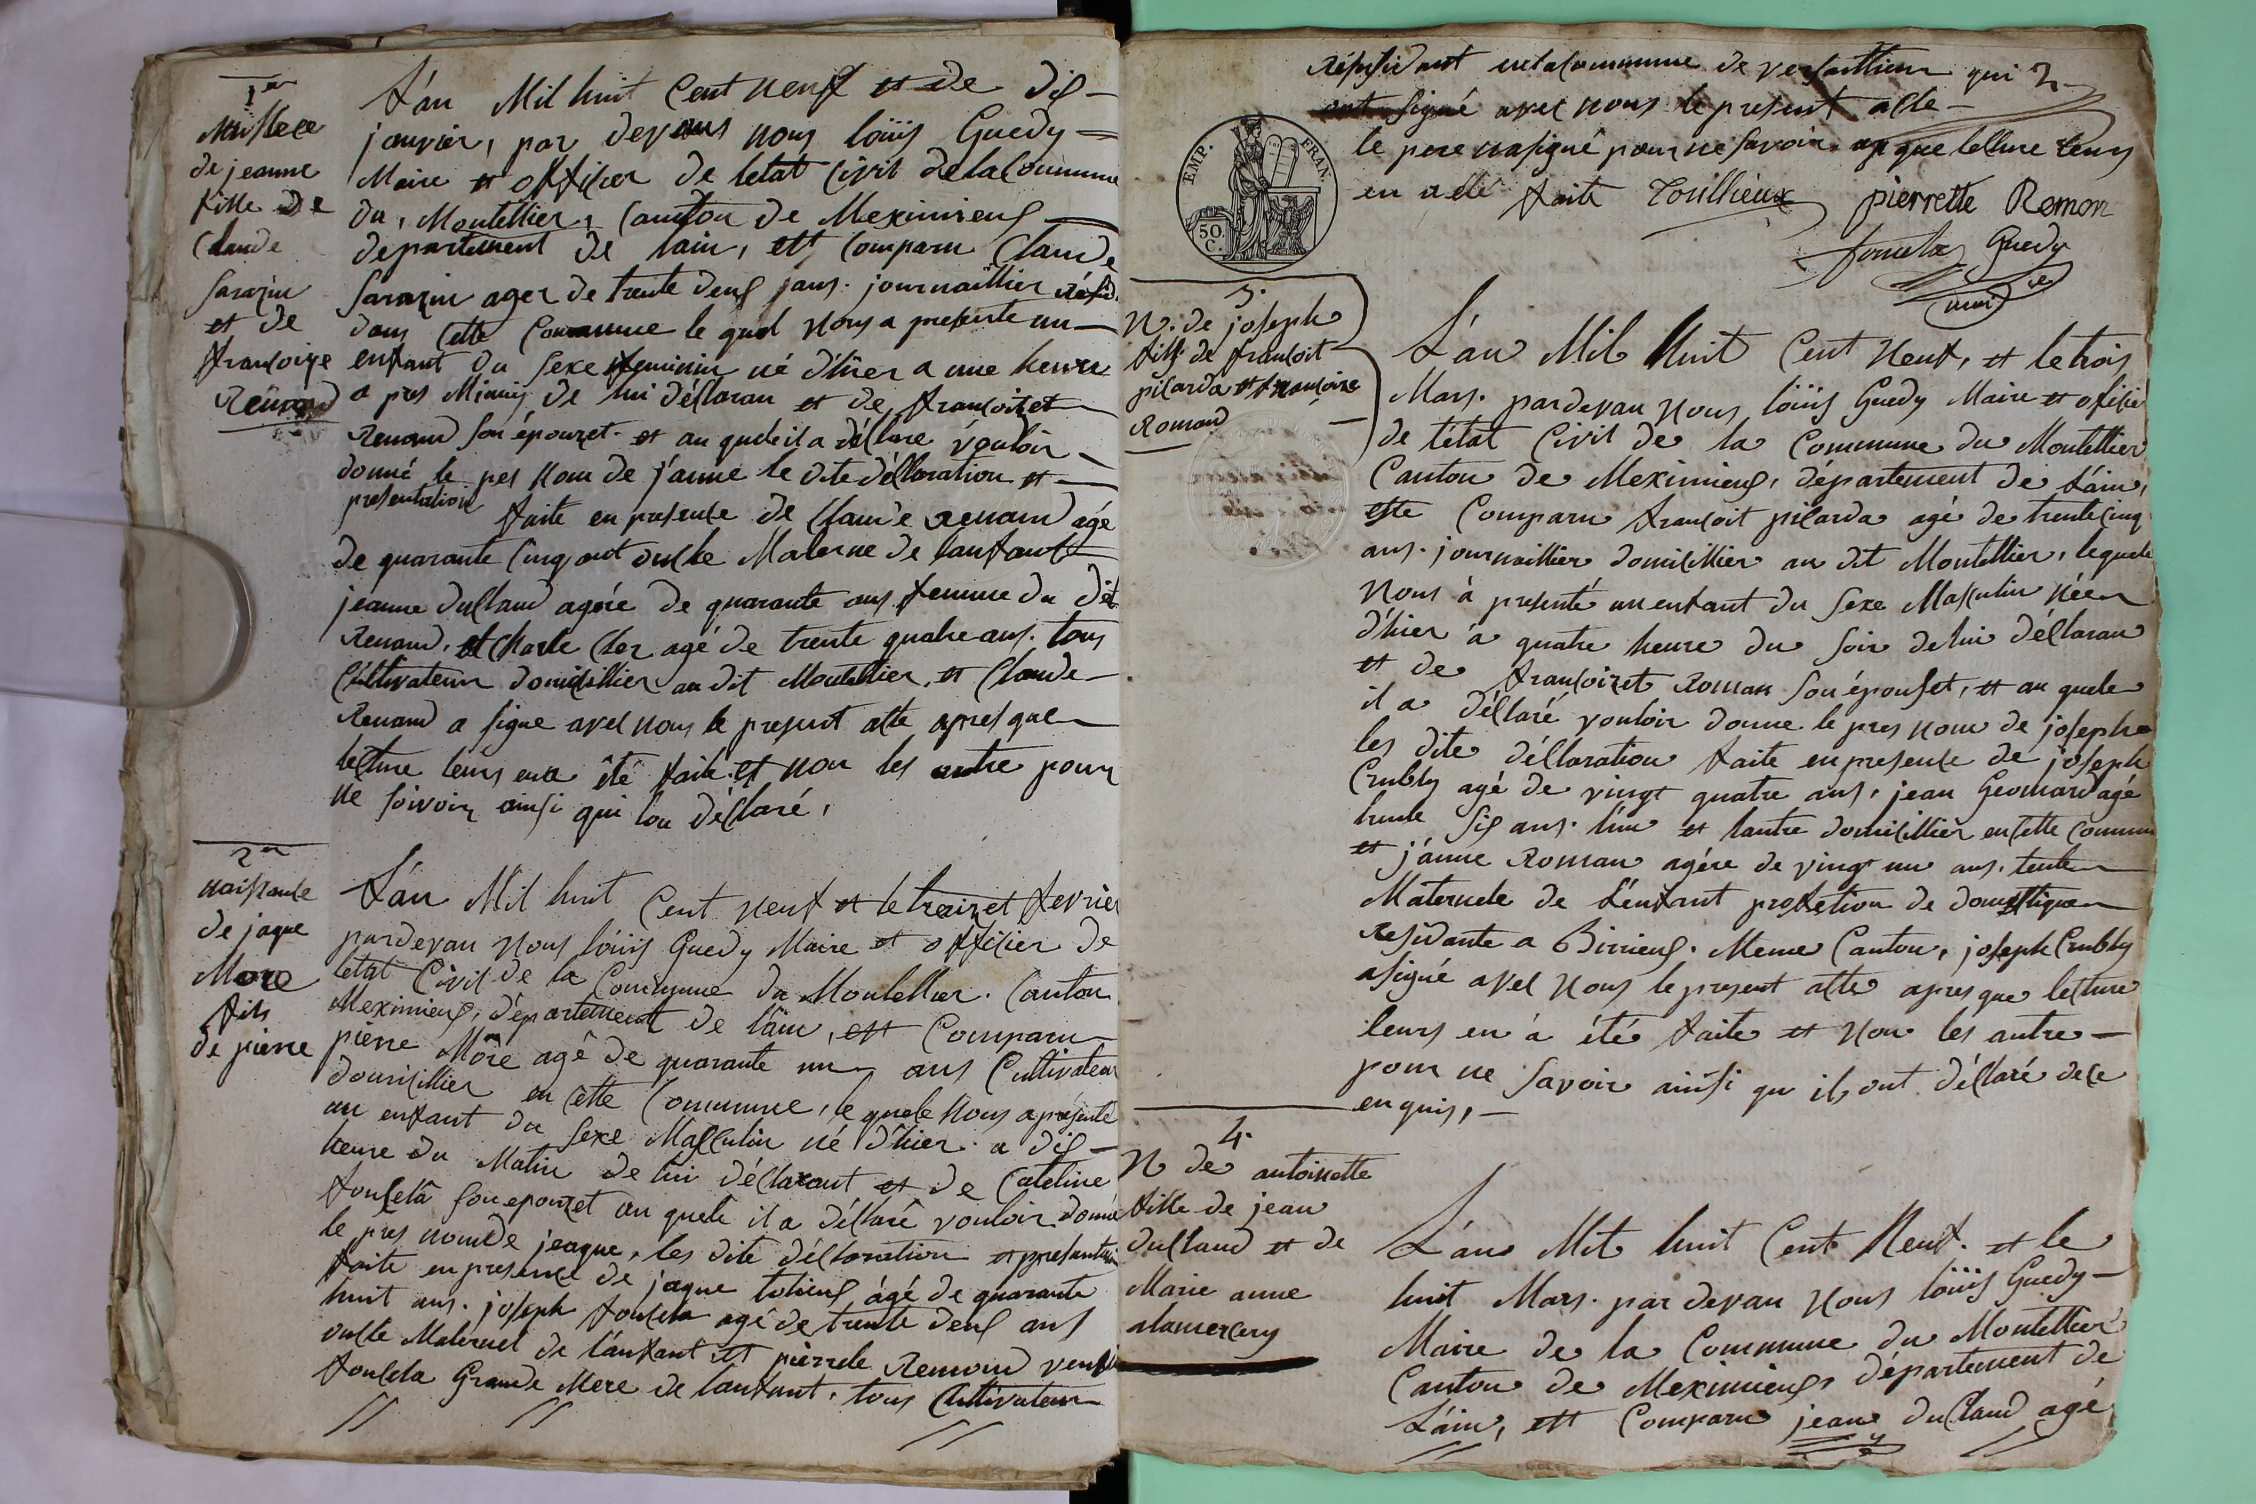 1er
Naissce
de jeanne
fille de
Claude
Sarazin
et de
françoise
Renand
L'an Mil huit Cent neuf et de dis
janvier, par devans nous loüis Guedy
Maire et officier de letat Civil de la Commune
du, Montellier, Canton de Meximieus
departement de lain, est Comparu Claude
Sarazin ager de trente deus jans. journaillier
dans Cette Commune le quel nous a presenté un
enfant du Sexe feminin né d'hier a une heure
a pres Minuij de lui déClaran et de françoizet
Renand Son épouzet. et au quele il a déClaré vouloir
donné le pres nom de j'anne le dite déClaration et
presentation faite en presense de Claude Renand agé
de quarante Cinq ant oncle Materne de lanfant
jeanne duCland agére de quarante ans femme du dit
Renand, et Charle Cler agé de trente quatre ans. tous
Cultivateur domiCillier au dit Montellier, et Claude
Renand a signe avec nous le present atte apres que
lecture leurs en a été faite. et non les autre pour
ne Savoir ainsi qui lon déClaré,
2er
naissante
de jaque
More
fils
de pierre
L'an Mil huit Cent neuf et le treizet fevrier
pardevan nous loüis Guedy Maire et offiCier de
letat Civil de la Commune du Montellier. Canton
Meximieus, département de l'ain, est Comparu
pierre More agé de quarante un ans Cultivateur
domiCillier en Cette Commune, le quele nous a présenté
un enfant du Sexe MasCulin né d'hier a dis
heure du Matin de lui déClarant et de Cateline
fonCela Son epouzet au quele il a déClaré vouloir donné
le pres nom de jeaque, les dite déClaration et presantation
faite en presense de jaque tolieus ágé de quarante
huit ans. joseph fonCela agé de trente deus ans
oncle Maternel de l'anfant et pierrete Remond
fonCela Grande Mere de lanfant, tous Cultivateur
résidant en la Commune de versaillieu qui
ont signé avec nous le present acte
le pere na signé pour ne savoir. apres que lecture leurs
en a été faite Touillieux pierrette Remon
fonsela Guedy
EMP. FRAN.
50. C.
3.
N. de joseph
fils de françoit
pilarda et françoire
Roman
L'an Mil huit Cent neuf, et le trois
Mars. pardevan nous loüis Guedy Maire et
de l'état Civil de la Commune du Montellier
Canton de Meximieus, département de L'ain,
este Comparu françoit pilarda agé de trente Cinq
ans. journaillier domiCillier au dit Montellier, lequele
Nous à presenté un enfant du Sexe MasCulin née
d'hier à quatre heure du Soir de lui déClaran
et de françoizet Roman Son épouset, et au quele
il a déClaré vouloir donne le pres nom de joseph
les dite déClaration faite en presense de joseph
Crubly agé de vingt quatre ans, jean Geomard agé
trente Sis ans. l'un et lautre domiCillier en Cette Commun
et j'anne Roman agére de vingt un ans, tente
Maternele de L'enfant profetion de domestique
residante a Birrieus. Meme Canton, joseph Crubly
a signé avec nous le present atte apres que lecture
leurs en à été faite et non les autre
pour ne Savoir ainsi qu il ont déClaré de Ce
enquis,
4.
N de antoinette
fille de jean
duCland et de
Marie anne
alamercery
L'an Mil huit Cent Neuf. et le
huit Mars. par devan nous loüis Guedy
Maire de la Commune du Montellier
Canton de Meximieus département de
L'ain, est Comparu jean duCland agé